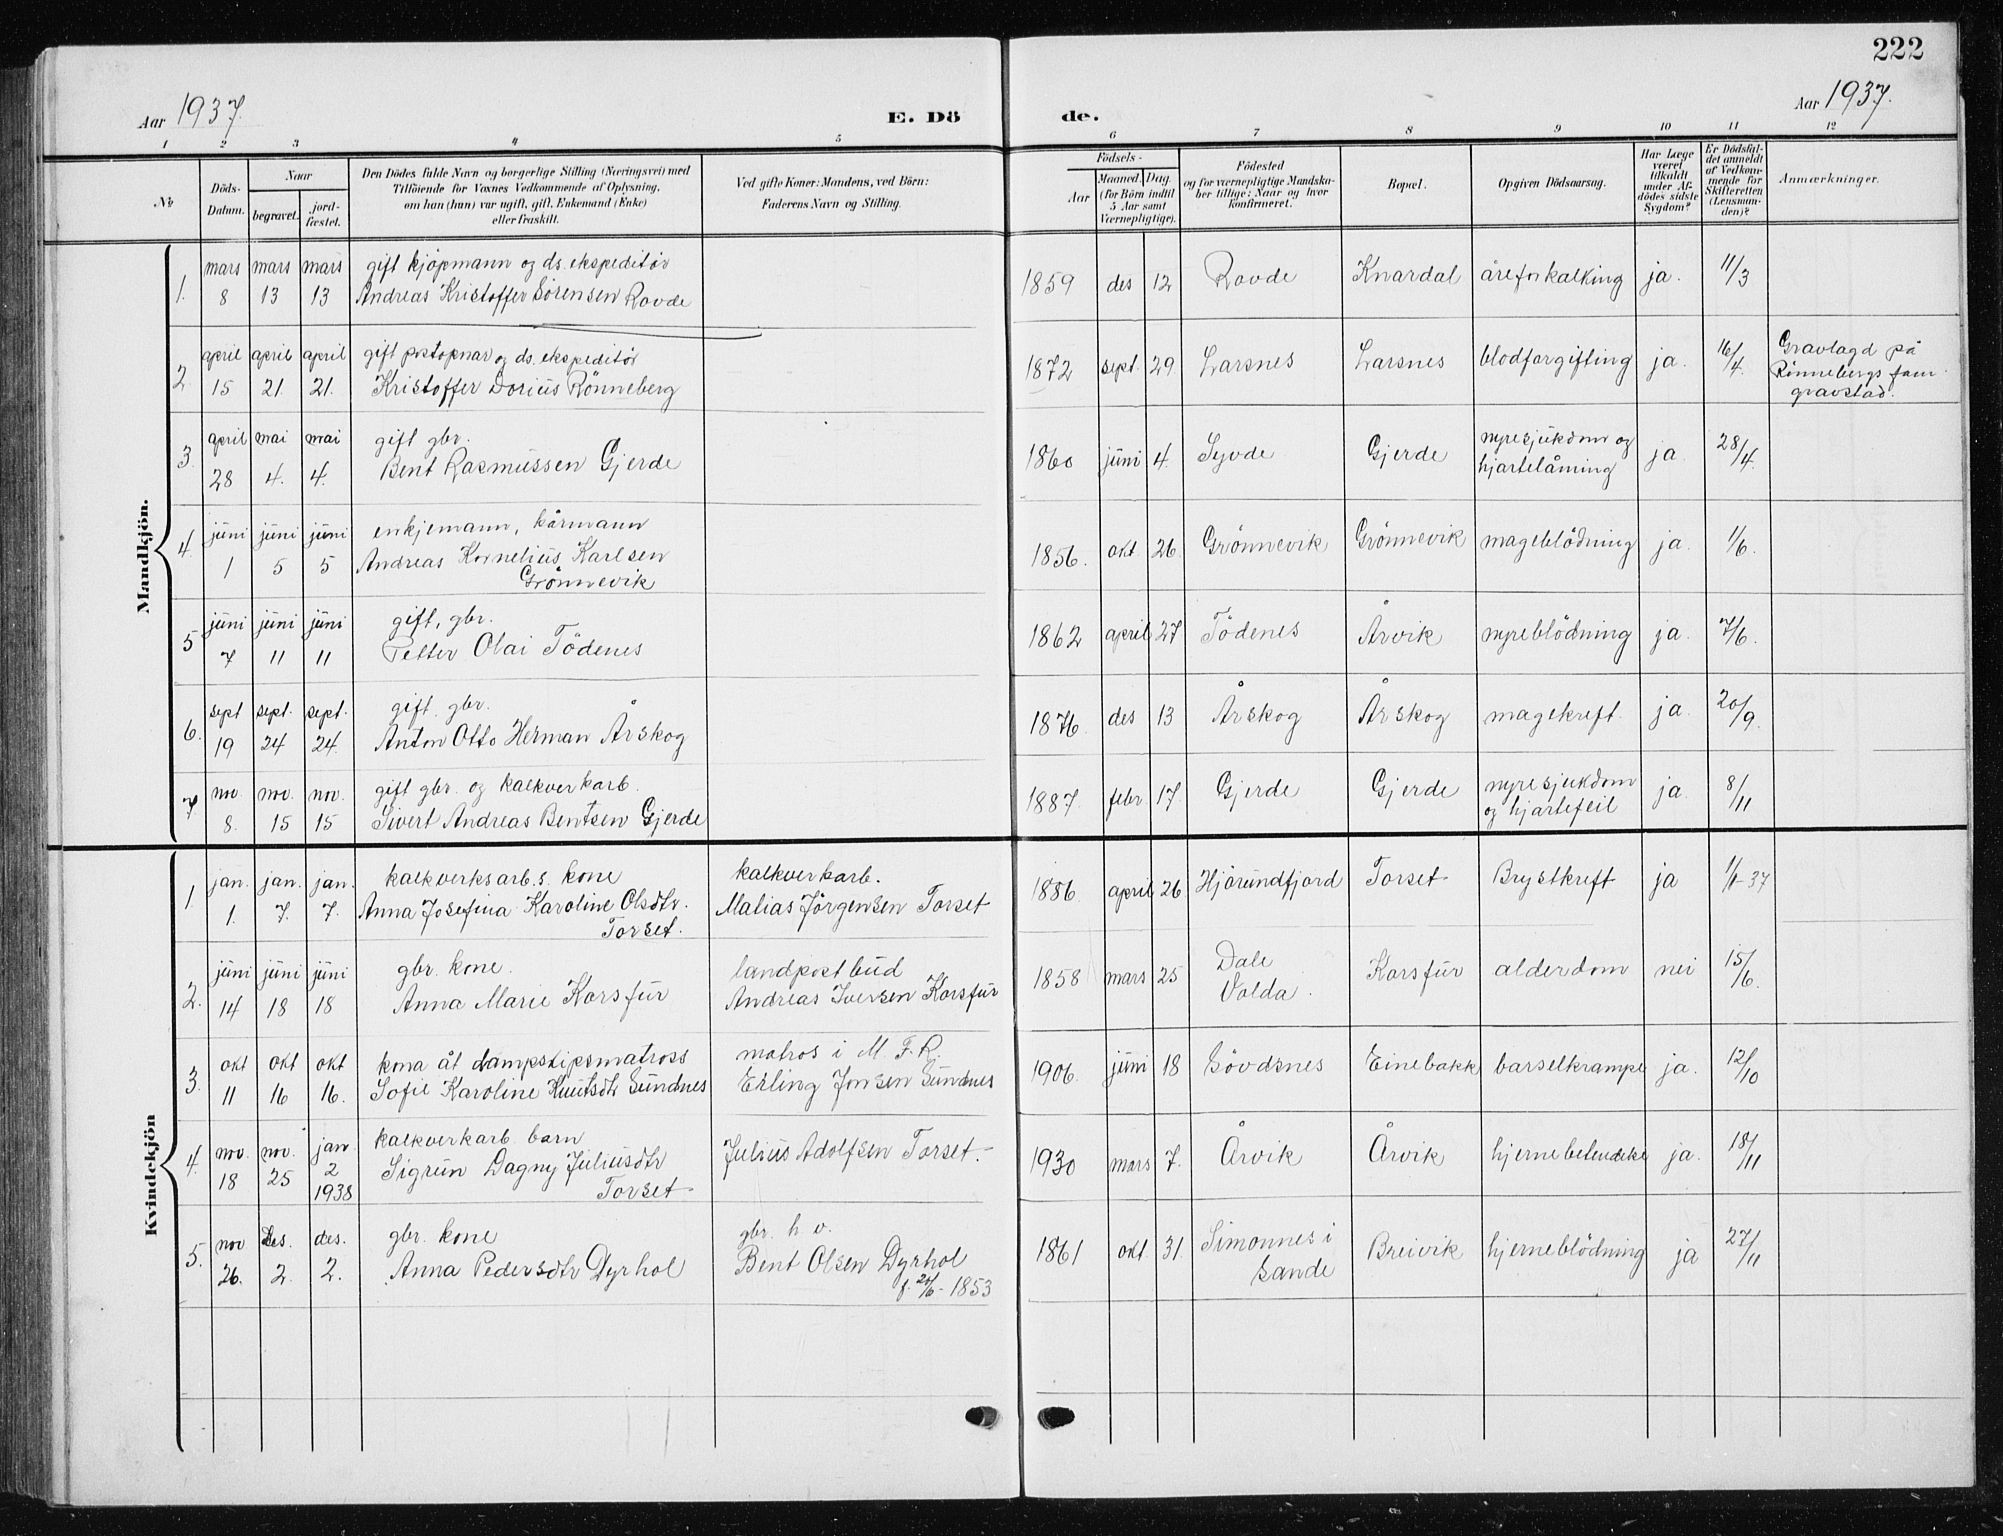 222
Aar 1937.
E. Dö
de.
Aar 1937.
1 2 3 4 5 6 7 8 9 10 11 12
№
Döds-
Datum.
Naar
begravet.
jord-
fæstet.
Den Dödes fulde Navn og borgerlige Stilling (Næringsvei) med
Tilföiende for Voxnes Vedkommende af Oplysning,
om han (hun) var ugift, gift, Enkemand (Enke)
eller fraskilt.
Ved gifte Koner: Mandens, ved Börn:
Faderens Navn og Stilling.
Födsels-
Aar
Maaned. Dag.
(for Börn indtil
5 Aar samt
Værnepligtige).
Födested
og for værnepligtige Mandska-
ber tillige: Naar og hvor
konfirmeret.
Bopæl.
Opgiven Dödsaarsag.
Har Læge
været
tilkaldt
under Af-
dödes sidste
Sygdom?
Er Dödsfal-
det anmeldt
af Vedkom-
mende for
Skifteretten
(Lensman-
den)?
Anmærkninger.
Mandkjön.
mars mars mars gift kjøpmann og ds. ekspeditör
1. 8 13 13 Andreas Kristoffer Sörensen Rovde 1859 des 12 Rovde Knardal åreforkalking ja. 11/3
april april april gift postopnar og ds. ekspeditör
2 15 21. 21. Kristoffer Dorius Rönneberg 1872 sept. 29. Larsnes Larsnes blodforgifting ja. 16/4. Gravlagd på
Rönnebergs fam.
gravstad.
april mai mai gift gbr.
3. 28 4. 4. Bent Rasmussen Gjerde 1860 juni 4. Syvde Gjerde nyresjukdom og
hjartelåming ja. 28/4.
juni juni juni enkjemann, kårmann
4. 1 5 5 Andreas Kornelius Karlsen
Grönnevik 1856. okt. 26. Grönnevik Grönnevik mageblödning ja. 1/6.
juni juni juni gift, gbr.
5 7 11 11 Petter Olai Tödenes 1862 april 27 Tödenes Årvik nyreblödning ja. 7/6.
sept sept. sept. gift. gbr.
6. 19 24 24. Anton Otto Herman Årskog 1876. des 13 Årskog Årskog magekreft. ja. 20/9.
nov. nov. nov. gift gbr. og kalkverkarb.
7. 8. 15 15 Sivert Andreas Bentsen Gjerde 1887. febr. 17. Gjerde Gjerde nyresjukdom
og hjartefeil ja. 8/11
Kvindekjön
jan. jan. jan. kalkverksarb.s. kone kalkverkarb.
1. 1. 7. 7. Anna Josefina Karoline Olsdtr.
Torset. Matias Jörgensen Torset 1886. april 26 Hjörundfjord Torset Brystkreft ja 1/1-37
juni juni juni gbr. kone. landpostbud
2. 14 18 18 Anna Marie Korsfur Andreas Iversen Korsfur 1858 mars 25 Dale
Volda. Korsfur alderdom nei 15/6.
okt okt okt kona åt dampskipsmatross matros i M. F. R.
3. 11 16 16. Sofie Karoline Knutsdtr Sundnes Erling Jonsen Sundnes 1906. juni 18 Sövdsnes Einebakk barselkrampe ja. 12/10
nov. nov. jan. kalkverkarb. barn
4. 18 25 2
1938 Sigrun Dagny Juliusdtr
Torset Julius Adolfsen Torset. 1930 mars 7. Årvik Årvik hjernebetendelse ja. 18/11
nov des. des. gbr. kone gbr. h v.
5. 26. 2. 2. Anna Pedersdtr Dyrhol Bent Olsen Dyrhol
1853 1861 okt. 31. Simonnes i
Sande Breivik hjerneblödning ja 27/11